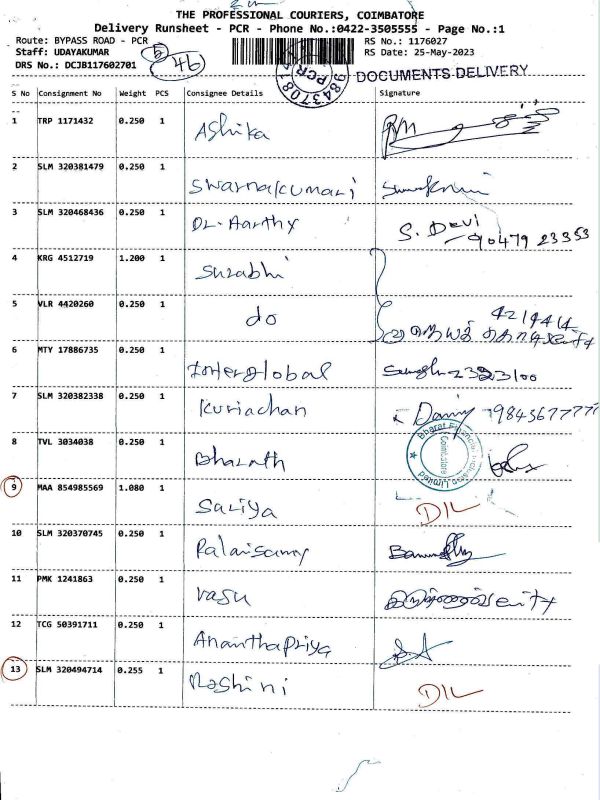 THE PROFESSIONAL COURIERS, COIMBATORE
Delivery Runsheet - PCR - Phone No.:0422-3505555 - Page No.:1
Route: BYPASS ROAD - PCR
RS No.: 1176027
Staff: UDAYAKUMAR
RS Date: 25-May-2023
DRS No.: DCJB117602701
5
46
PCR
DOCUMENTS DELIVERY
S No Consignment No Weight PCS Consignee Details Signature
1 TRP 1171432 0.250 1 Ashika
2 SLM 320381479 0.250 1 Swarnakumari
3 SLM 320468436 0.250 1 Dr. Aarthy S. Devi
90479 23353
4 KRG 4512719 1.200 1 Surabhi
5 VLR 4420260 0.250 1 do 4214414
6 MTY 17886735 0.250 1 Interglobal
7 SLM 320382338 0.250 1 Kuriachan Danny
8 TVL 3034038 0.250 1 Bharath
Bharat Financial Inclusion Limited
Coimbatore
9 MAA 854985569 1.080 1 Sariya D/L
10 SLM 320370745 0.250 1 Palaisamy
11 PMK 1241863 0.250 1 Vasu
12 TCG 50391711 0.250 1 Ananthapriya
13 SLM 320494714 0.255 1 Roshini D/L